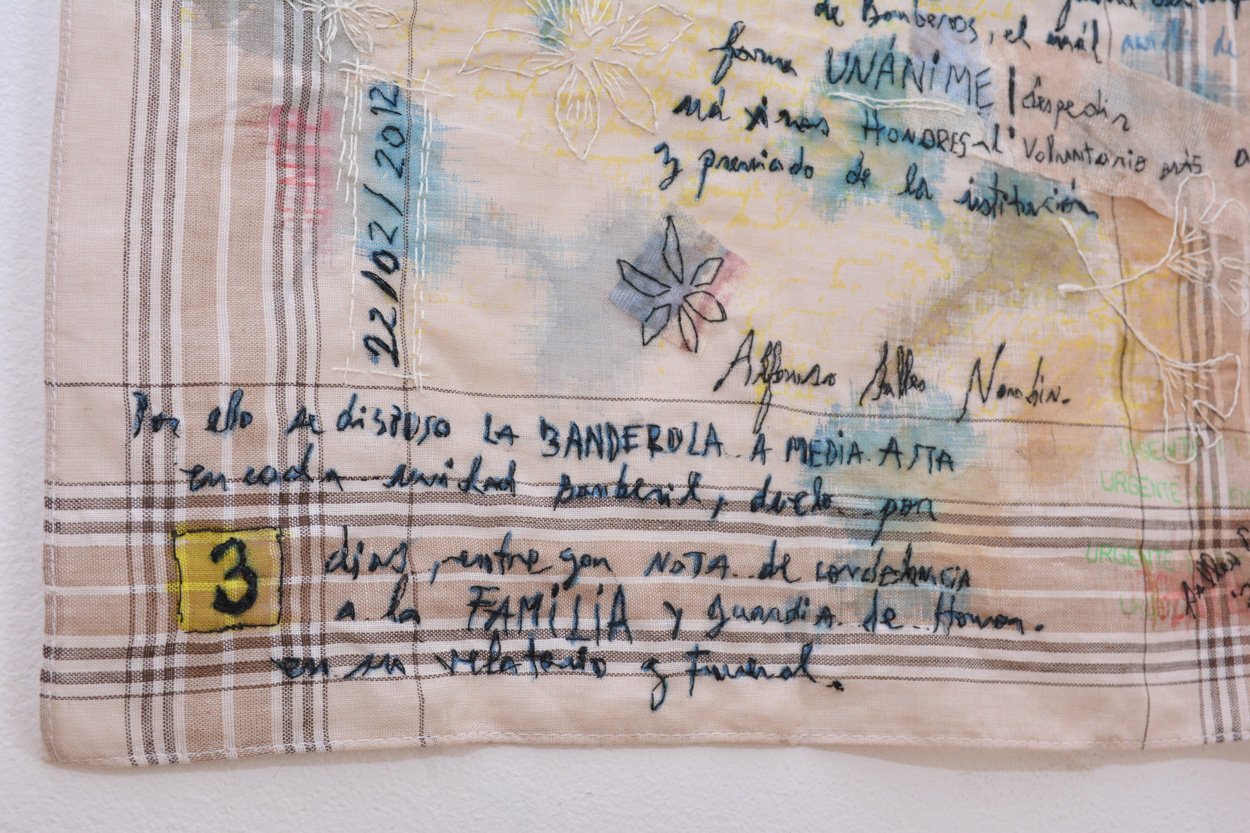 de Bomberos, el cuál
forma UNÁNIME despedir
MÁXIMOS HONORES al Voluntario más
y premiado de la institución
22/02/2012
Alfonso
Por ello se dispuso LA BANDEROLA A MEDIA ASTA
en cada unidad Bomberil, duelo por
3 días, entregan NOTA de condolencia
a la FAMILIA y guardia de Honor.
en su velatorio y funeral.
URGENTE
URGENTE
URGENTE